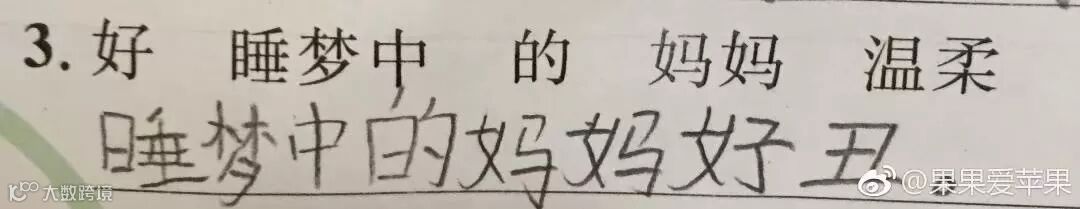 3. 好 睡梦中 的 妈妈 温柔
睡梦中的妈妈好丑.
大数跨境
@果果爱苹果